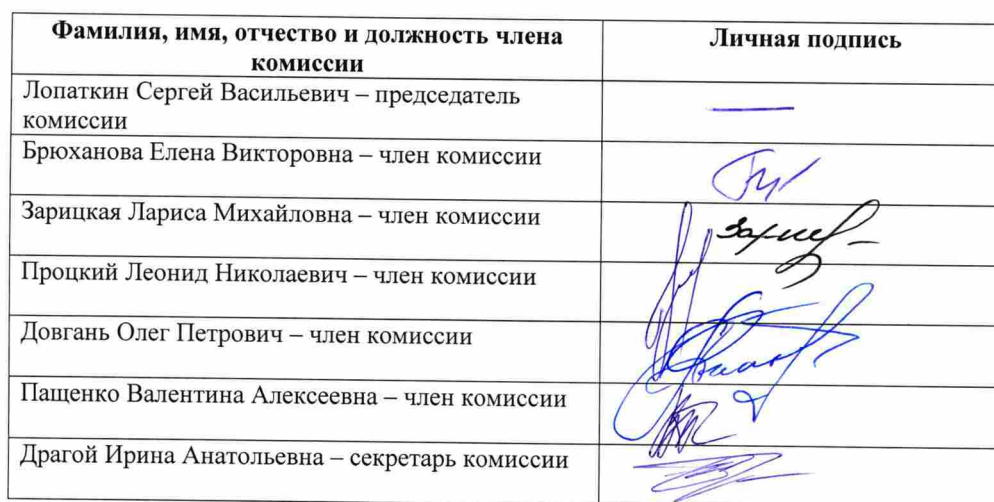 Фамилия, имя, отчество и должность члена
комиссии
Личная подпись
Лопаткин Сергей Васильевич – председатель
комиссии
Брюханова Елена Викторовна – член комиссии
Зарицкая Лариса Михайловна – член комиссии
Процкий Леонид Николаевич – член комиссии
Довгань Олег Петрович – член комиссии
Пащенко Валентина Алексеевна – член комиссии
Драгой Ирина Анатольевна – секретарь комиссии